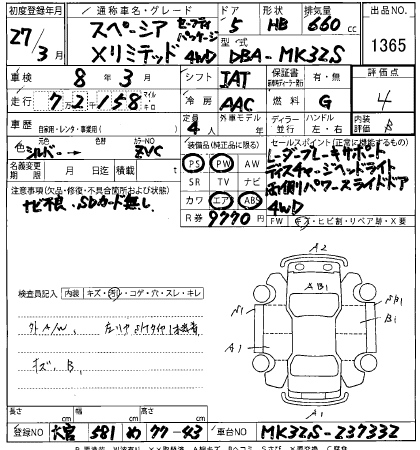 初度登録年月 通称車名・グレード ドア 形状 排気量 出品NO
27年 3月 スペーシア セーフティパッケージ 5 HB 660cc
Xリミテッド 4WD 型式 DBA-MK32S 1365
車検 8年 3月 シフト IAT 保証書 有・無 評価点
走行 72158 マイル キロ 冷房 AAC 燃料 G 4
車歴 自家用・レンタ・事業用( ) 定員 4人 外車モデル年 ディーラー 並行 ハンドル 左・右 内装 評価 B
色 シルバー → 色替 カラーNO ZVC 装備品(純正品に限る) セールスポイント(正常に機能するもの)
名義変更期限 月 日迄 積載量 PS PW AW レーダーブレーキサポート
注意事項(欠品・修復・不具合箇所および状態) SR TV ナビ ディスチャージヘッドライト
ナビ不良、SDカード無し カワ エアB ABS 両側パワースライドドア
R券 9770円 4WD
FW キズ・ヒビ割・リペア跡・X要
検査員記入 内装 キズ・汚・コゲ・穴・スレ・キレ
A2
AB1
S1 SB1
B1
A1
外A/W、
キズ、B、
A1
長さ cm 幅 cm 高さ cm
登録NO 大宮 581 め 77-43 車台NO MK32S-237332